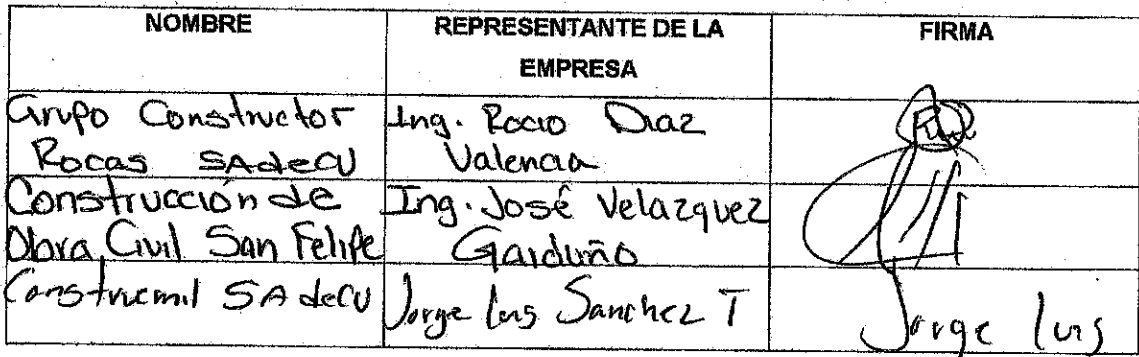 NOMBRE
REPRESENTANTE DE LA
EMPRESA
FIRMA
Grupo Constructor
Rocas SAdeCV
Ing. Rocio Diaz
Valencia
Construcción de
Obra Civil San Felipe
Ing. José Velazquez
Garduño
Construcmil SAdeCV
Jorge Luis Sanchez T
Jorge Luis